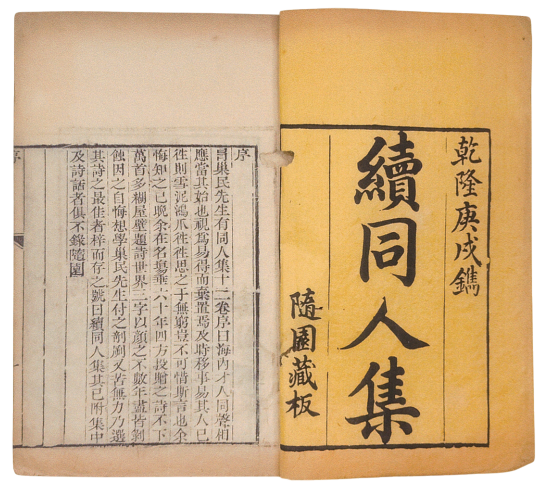 乾隆庚戌鐫
續同人集
隨園藏板
序
冒巢民先生有同人集十二卷序曰海內才人同聲相
應當其始也視爲易得而棄置焉及時移事易其人已
徃則雪泥鴻爪徃徃思之于無窮豈不可惜斯言也余
悔知之已晚余在名塲垂六十年四方投贈之詩不下
萬首多糊屋壁題詩世界三字以顏之不數年盡皆剝
蝕因之自悔想學巢民先生付之剞劂又苦無力乃選
其詩之最佳者梓而存之號曰續同人集其已附集中
及詩話者俱不錄隨園
序